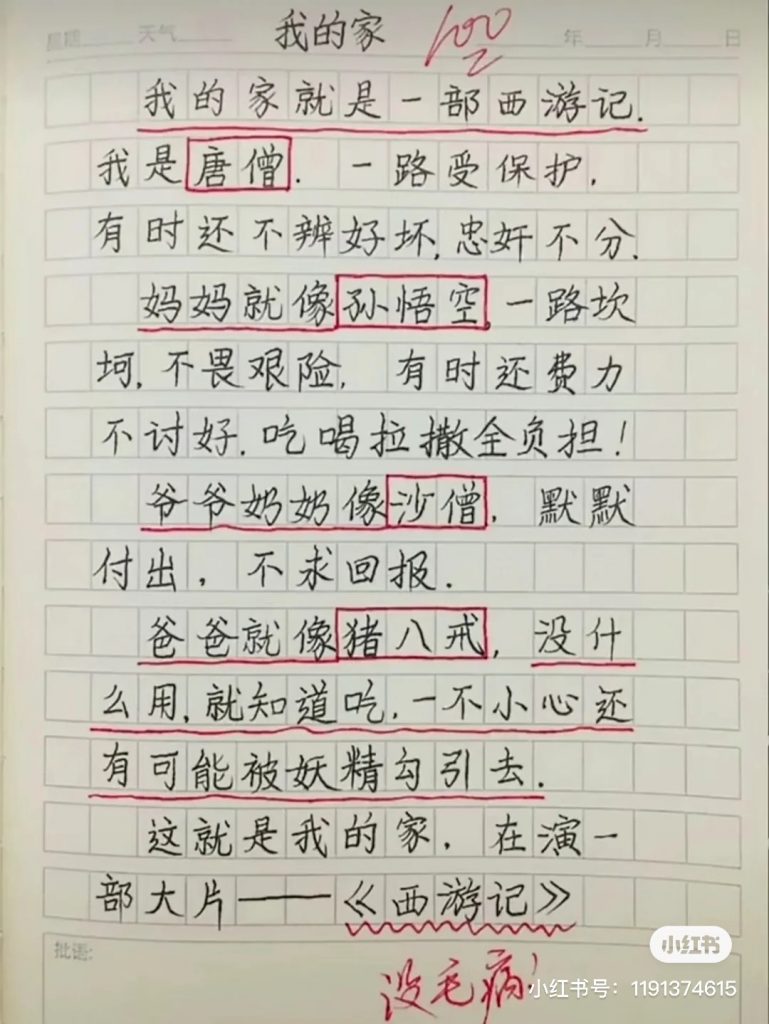 星期 天气 我的家 100 年 月 日
我的家就是一部西游记.
我是唐僧. 一路受保护,
有时还不辨好坏,忠奸不分.
妈妈就像孙悟空,一路坎
坷,不畏艰险, 有时还费力
不讨好.吃喝拉撒全负担!
爷爷奶奶像沙僧, 默默
付出, 不求回报.
爸爸就像猪八戒, 没什
么用,就知道吃,一不小心还
有可能被妖精勾引去.
这就是我的家, 在演一
部大片——《西游记》
批语:
没毛病!
小红书
小红书号: 1191374615